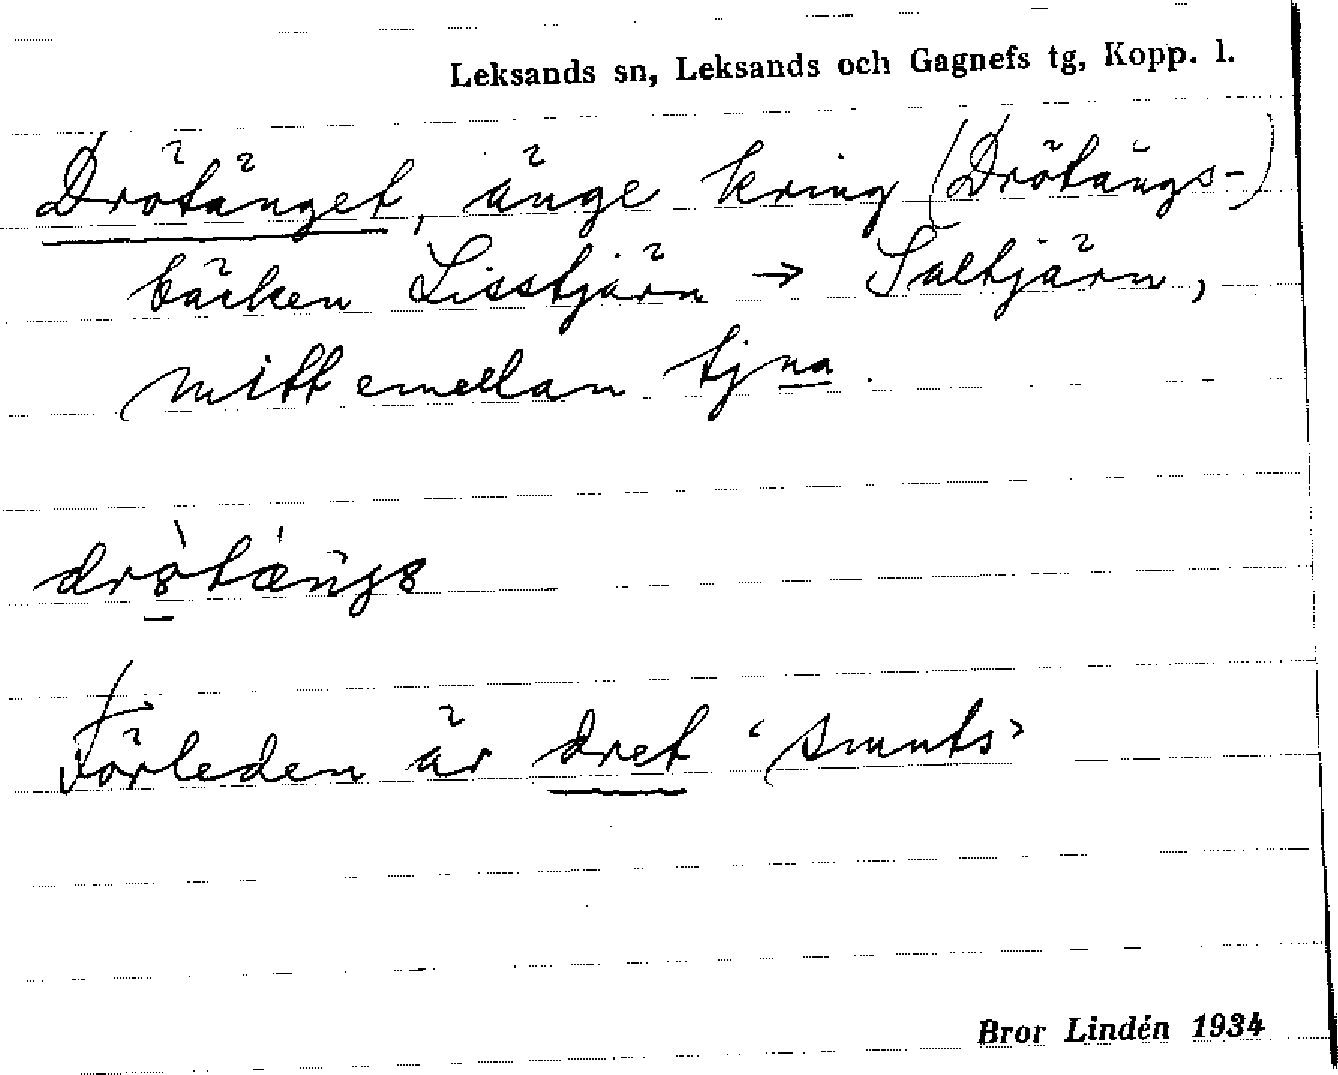 Leksands sn, Leksands och Gagnefs tg, Kopp. l.
Drötänget, änge kring (Drötängs-)
bäcken Lisstjärn → Saltjärn,
mitt emellan tjna.
dròtæ̀ŋs
Förleden är dret ‘smuts’
Bror Lindén 1934